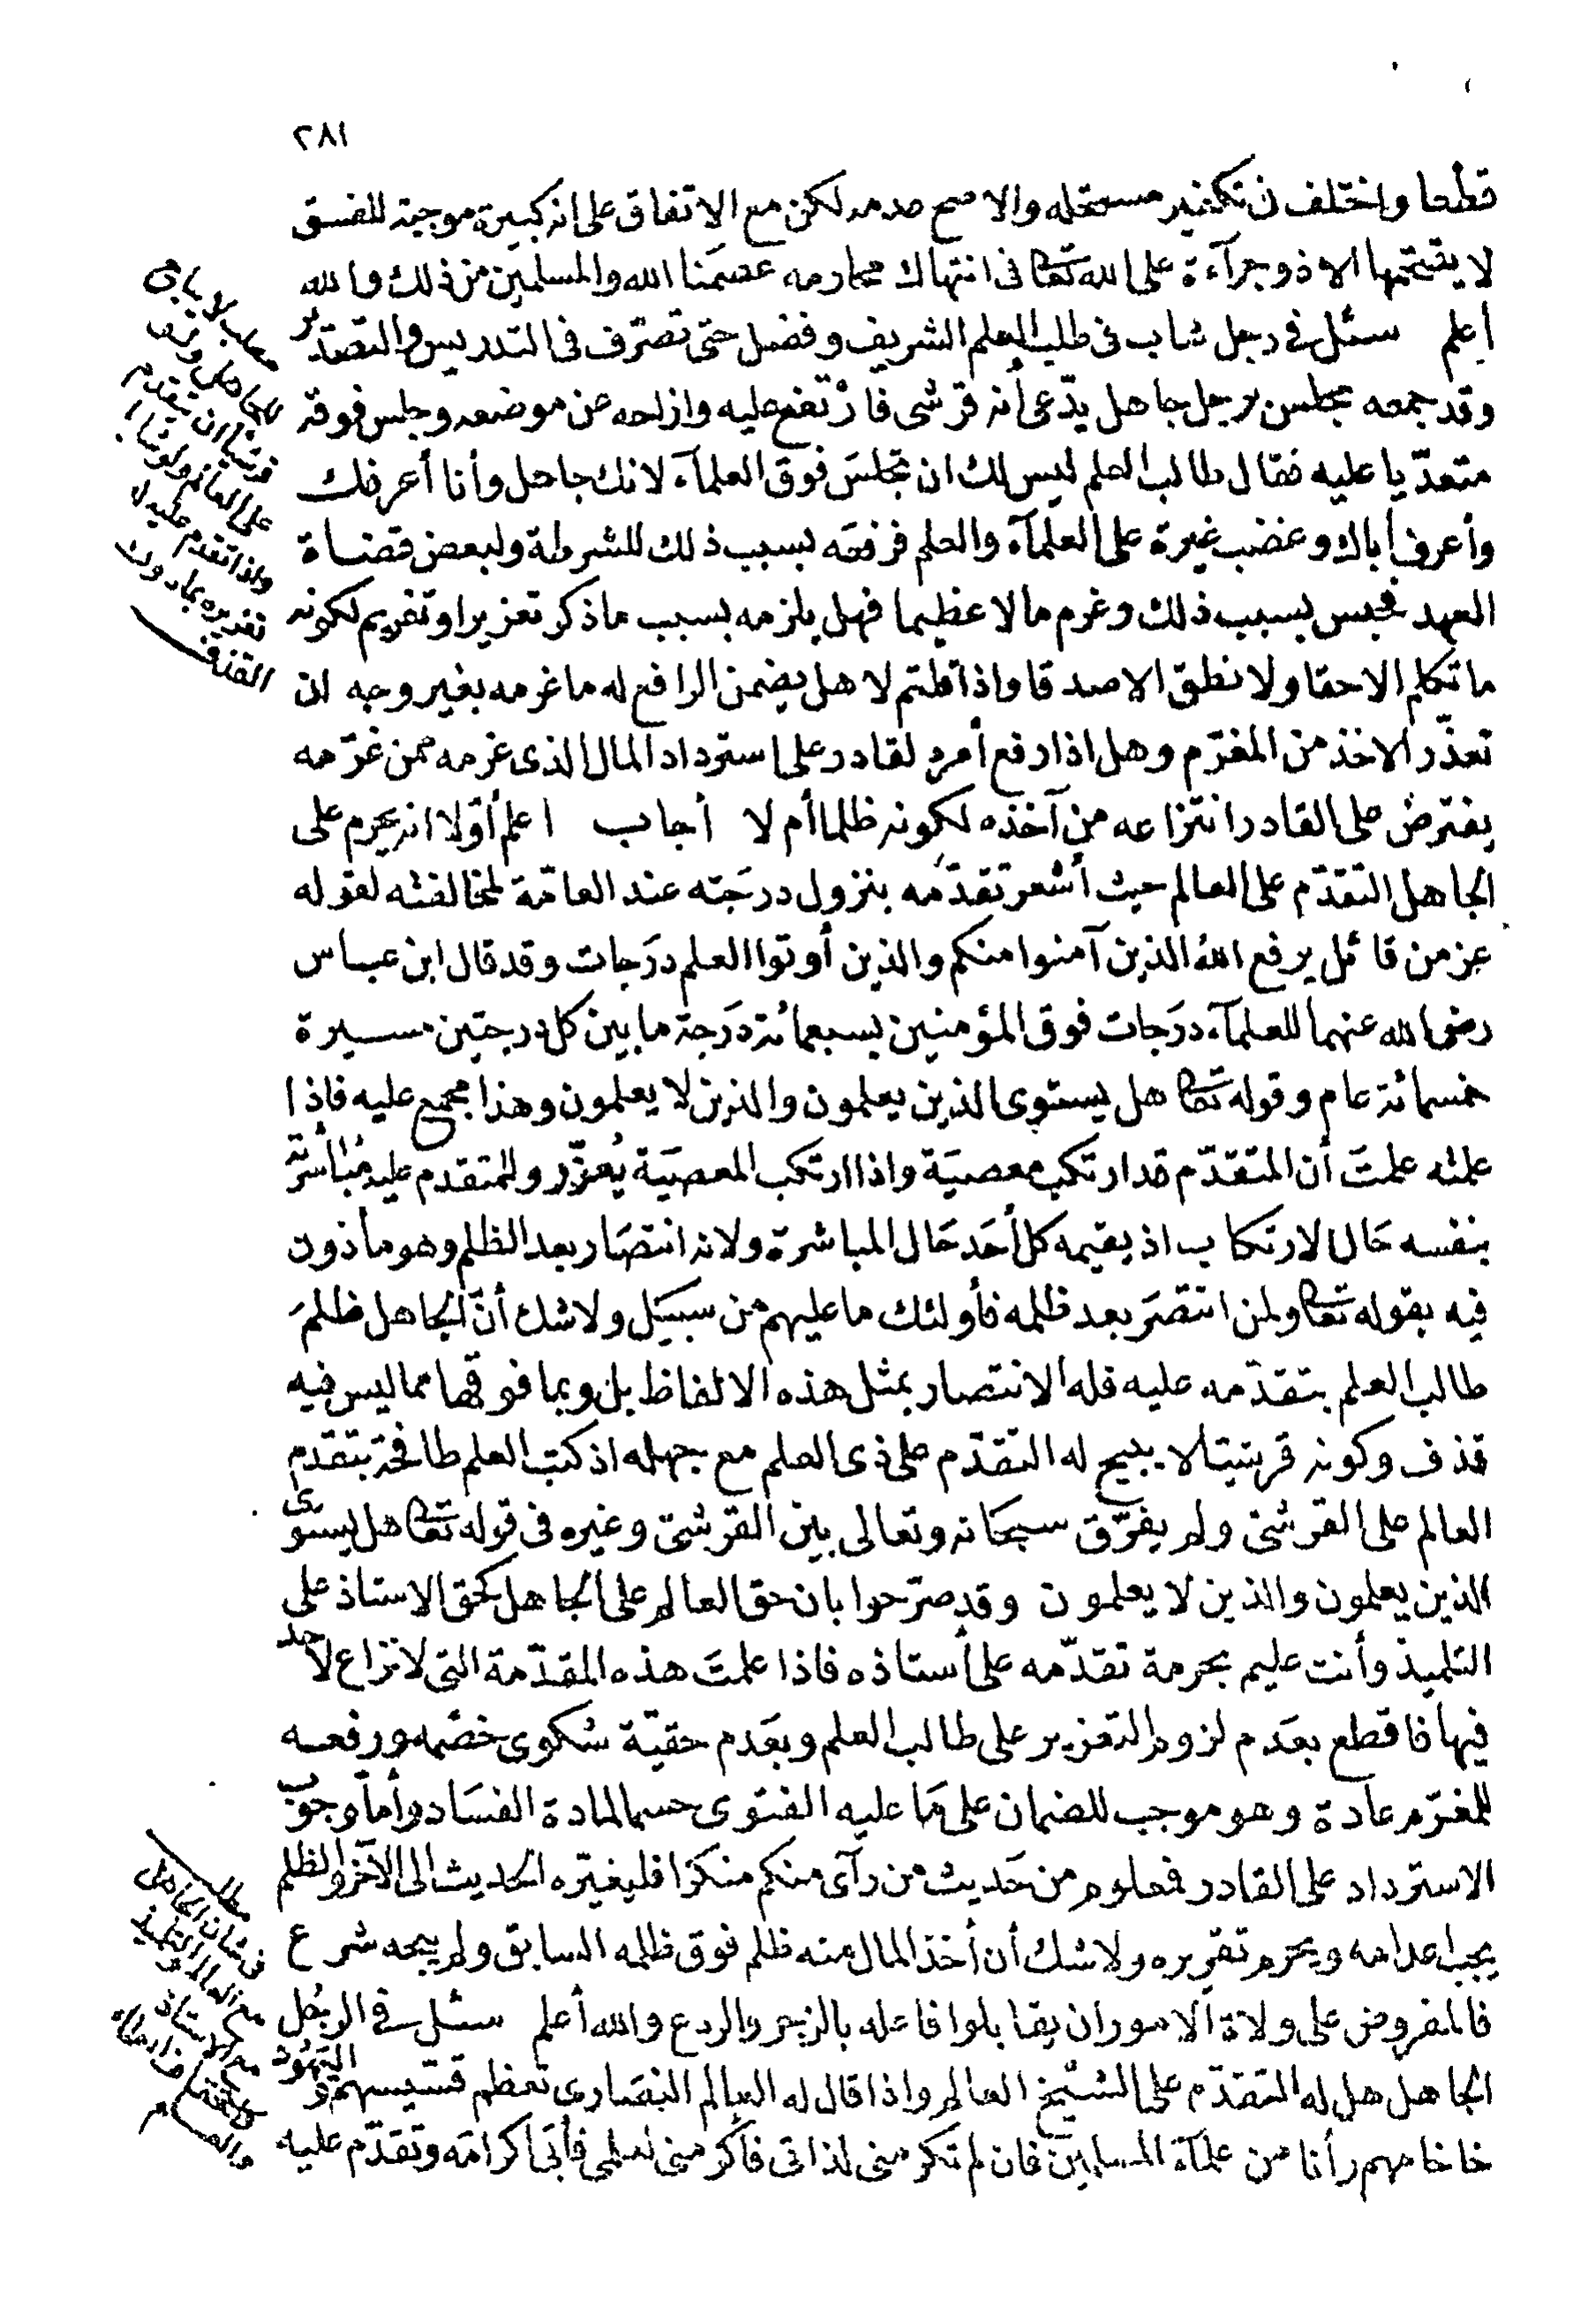 ٢٨١
قطعا واختلف في تكفير مستحله والاصح عدمه لكن مع الاتفاق على انه كبيرة موجبة للفسق
لا يقتحمها الا ذو جرآءة على الله تعا فى انتهاك محارمه عصمنا الله والمسلمين من ذلك والله
أعلم سئل في رجل شاب فى طلب العلم الشريف وفضل حتى تصرّف فى التدريس والتصدير
وقد جمعه مجلس برجل جاهل يدّعى أنه قرشى فارتفع عليه وازاحه عن موضعه وجلس فوقه
متعدّيا عليه فقال طالب العلم ليس لك ان تجلس فوق العلمآء لانك جاهل وأنا أعرفك
وأعرف أباك وغضب غيرة على العلمآء والعلم فرفعه بسبب ذلك للشرطة ولبعض قضاة
العهد فحبس بسبب ذلك وغرم مالا عظيما فهل يلزمه بسبب ماذكر تعزير او تغريم لكونه
ما تكلم الاحقا ولا نطق الا صدقا واذا قلتم لا هل يضمن الرافع له ما غرمه بغير وجه ان
تعذّر الاخذ من المغرّم وهل اذا رفع أمره لقادر على استرداد المال الذى غرمه ممن غرّمه
يفترض على القادر انتزاعه من آخذه لكونه ظلما أم لا أجاب اعلم أوّلا انه يحرم على
الجاهل التقدّم على العالم حيث أشعر تقدّمه بنزول درجته عند العامّة لمخالفته لقوله
عز من قائل يرفع الله الذين آمنوا منكم والذين أوتوا العلم درجات وقد قال ابن عباس
رضى الله عنهما للعلمآء درجات فوق المؤمنين بسبعمائة درجة ما بين كل درجتين مسيرة
خمسمائة عام وقوله تعا هل يستوى الذين يعلمون والذين لا يعلمون وهذا مجمع عليه فاذا
علمته علمتَ أن المتقدّم قد ارتكب معصيَة واذا ارتكب المعصيَة يُعزّر وللمتقدم عليه مُباشرته
بنفسه حَال الارتكاب اذ يقيمه كل أحَد حَال المباشرة ولانه انتصَار بعد الظلم وهو مأذون
فيه بقوله تعا ولمن انتصَر بعد ظلمه فأولئك ما عليهم من سبيَل ولا شك أنّ الجاهل ظلمَ
طالب العلم بتقدّمه عليه فله الانتصار بمثل هذه الالفاظ بل وبما فوقها مما ليس فيه
قذف وكونه قريشيّا لا يبيح له التقدّم على ذى العلم مع جهله اذ كتب العلم طافحة بتقدم
العالم على القرشىّ ولم يفرّق سبحانه وتعالى بين القرشىّ وغيره فى قوله تعا هل يستوى
الذين يعلمون والذين لا يعلمون وقد صرّحوا بان حق العالم على الجاهل كحق الاستاذ على
التلميذ وأنت عليم بحرمة تقدّمه على أستاذه فاذا علمتَ هذه المقدّمة التى لا نزاع لاحد
فيها فاقطع بعَدم لزوم التعزير على طالب العلم وبعَدم حقيّة شكوى خصَمه ورفعه
للمغرّم عادة وهو موجب للضمان على مَا عليه الفتوى حسما لمادة الفسَاد وأما وجوب
الاسترداد على القادر فمعلوم من حَديث من رآى منكم منكرا فليغيّره الحديث الى الآخر والظلم
يجب اعدامه ويحرم تقريره ولا شك أن أخذ المال منه ظلم فوق ظلمه السابق ولم يبحه شرع
فالمفروض على ولاة الامور ان يقابلوا فاعله بالزجر والردع والله أعلم سئل في الرجُل
الجاهل هل له التقدّم على الشيخ العالم واذا قال له العالم النصَارى تعظم قسّيسهم واليَهُود
خاخامهم وأنا من علمآء المسلمين فان لم تكرمنى لذاتى فاكرمنى لعلمى فأبى اكرامَه وتقدّم عليه
مطلب لا يباح
للجاهل ولو
قرشيا ان يتقدم
على العالم ولو شابا
واذا تقدم عليه له
تعزيره بما دون
القذف
مطلب
فى شان الجاهل
مع العالم والتلميذ
مع الاستاذ